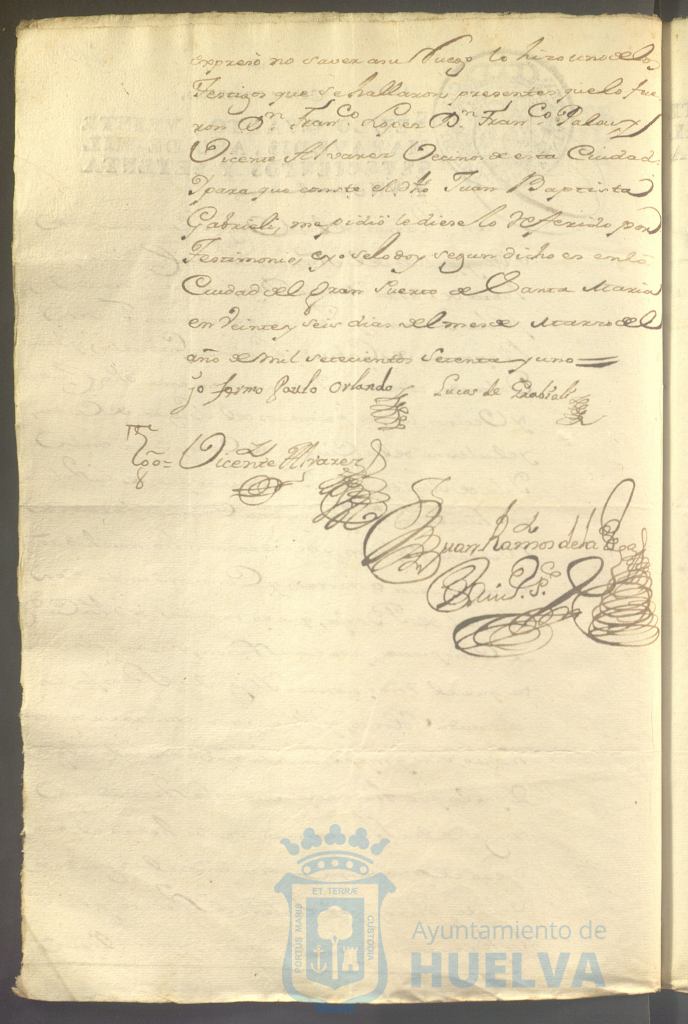 expresó no saver a su Ruego lo hizo uno de los
Testigos que se hallaron presentes que lo fue
ron Dn. Franco. Lopez Dn. Franco. Palau y
Vicente Alvarez Vecinos de esta Ciudad
Y para que conste el dho Juan Baptista
Gabrieli, me pidió le diese lo referido por
Testimonio, e yo se lo doy segun dicho es en la
Ciudad del Gran Puerto de Santa Maria
en Veinte y seis dias del mes de Marzo del
año de mil setecientos setenta y uno
jo formo Paulo Orlando Lucas de Grabieli
Vicente Alvarez
Juan Ramos de la
PORTUS MARIS
ET TERRÆ
CUSTODIA
Ayuntamiento de
HUELVA